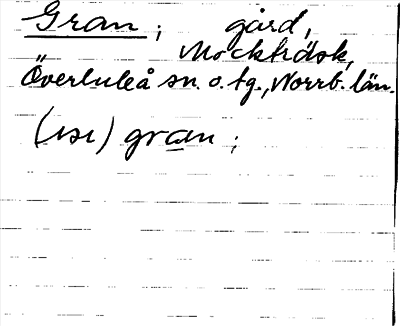 Gran; gård,
Mockträsk,
Överluleå sn. o. tg., Norrb. län.
(ısı) gran;